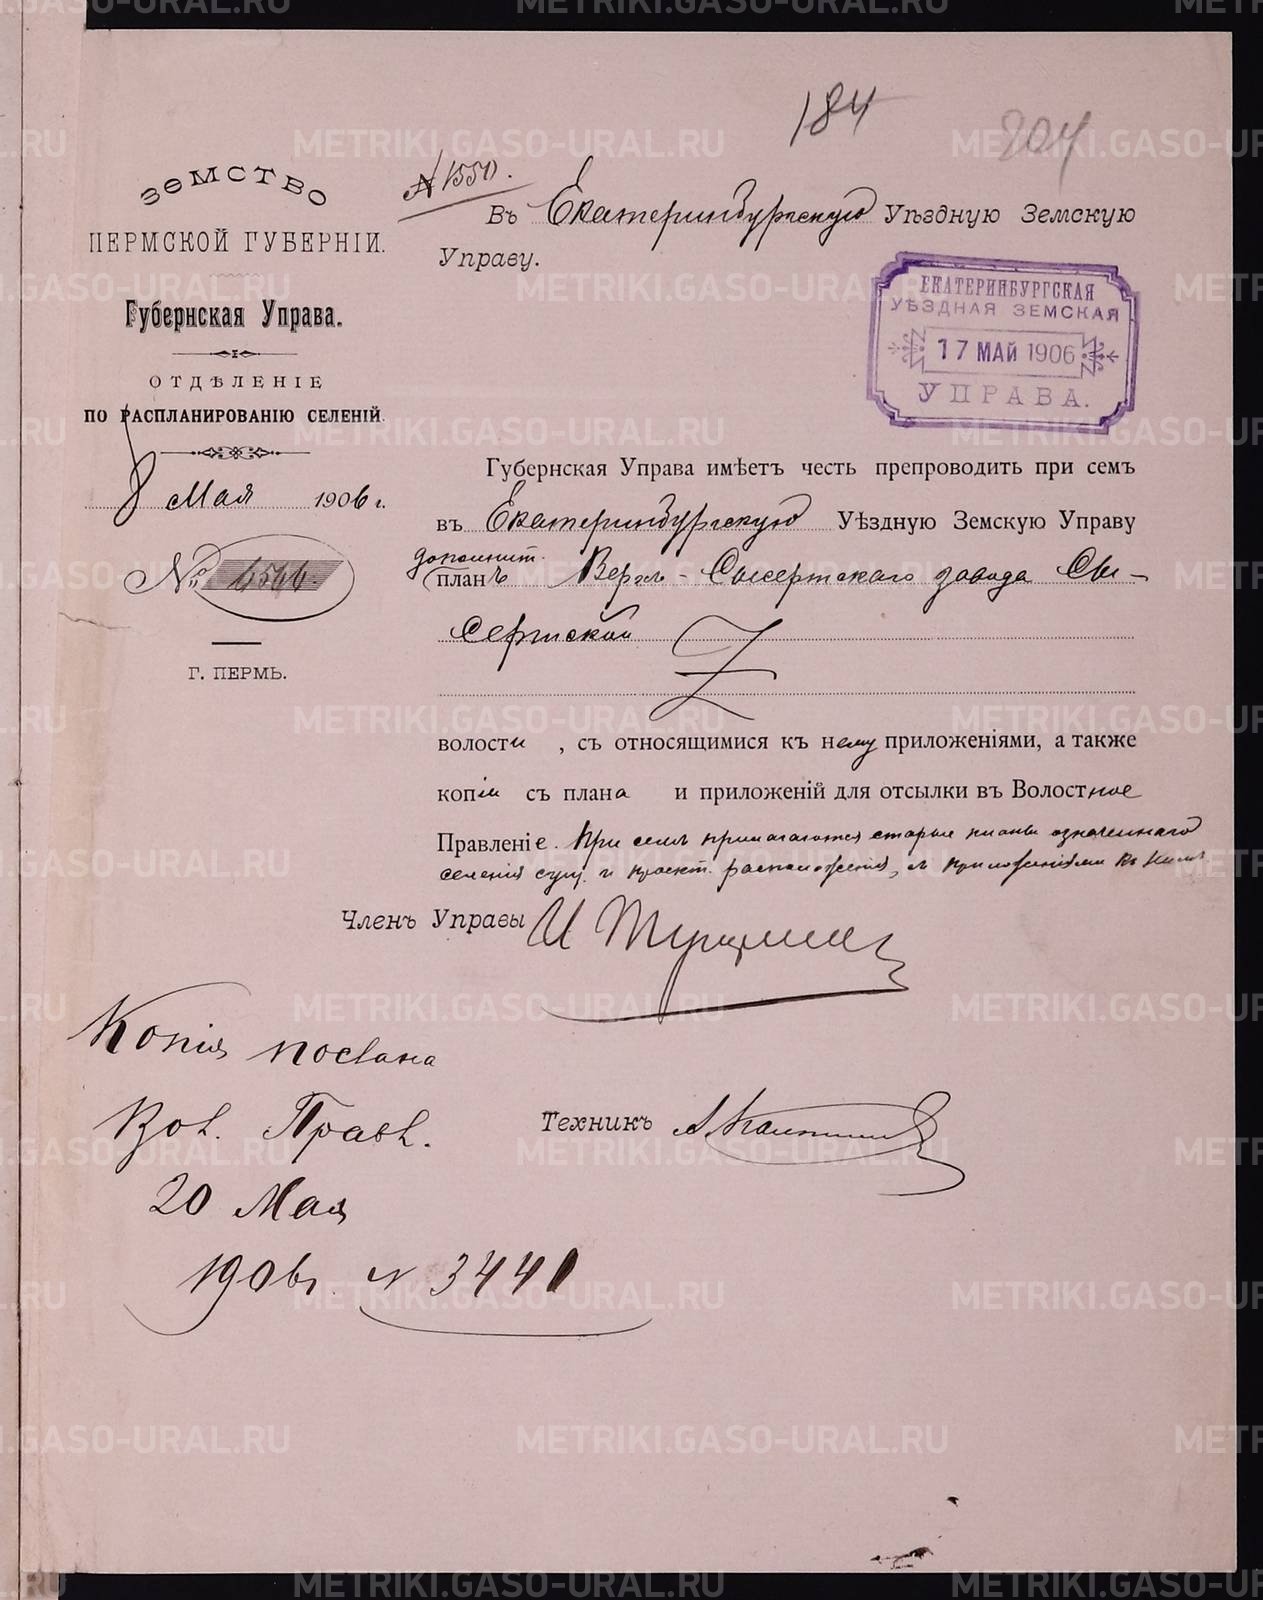 184
204
ЗЕМСТВО
ПЕРМСКОЙ ГУБЕРНІИ.
Губернская Управа.
ОТДѢЛЕНІЕ
ПО РАСПЛАНИРОВАНІЮ СЕЛЕНІЙ.
8 Мая 1906 г.
№
Г. ПЕРМЬ.
№ 1550.
Въ Екатеринбургскую Уѣздную Земскую
Управу.
ЕКАТЕРИНБУРГСКАЯ
УѢЗДНАЯ ЗЕМСКАЯ
17 МАЙ 1906
УПРАВА.
Губернская Управа имѣетъ честь препроводить при семъ
въ Екатеринбургскую Уѣздную Земскую Управу
дополнит.
планъ Верхъ-Сысертскаго завода Сы-
сертской
волости, съ относящимися къ нему приложеніями, а также
копіи съ плана и приложеній для отсылки въ Волостное
Правленіе. При семъ прилагаются старые планы означеннаго
селенія сущ. и проект. расположенія, с приложеніями къ нимъ.
Членъ Управы И
Копія послана
Вол. Правл.
20 Мая
1906 г. № 3441
Техникъ А.
METRIKI.GASO-URAL.RU